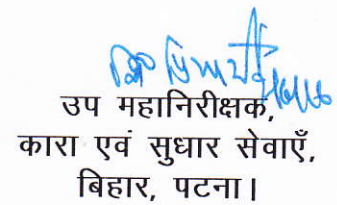 उप महानिरीक्षक,
कारा एवं सुधार सेवाएँ,
बिहार, पटना।